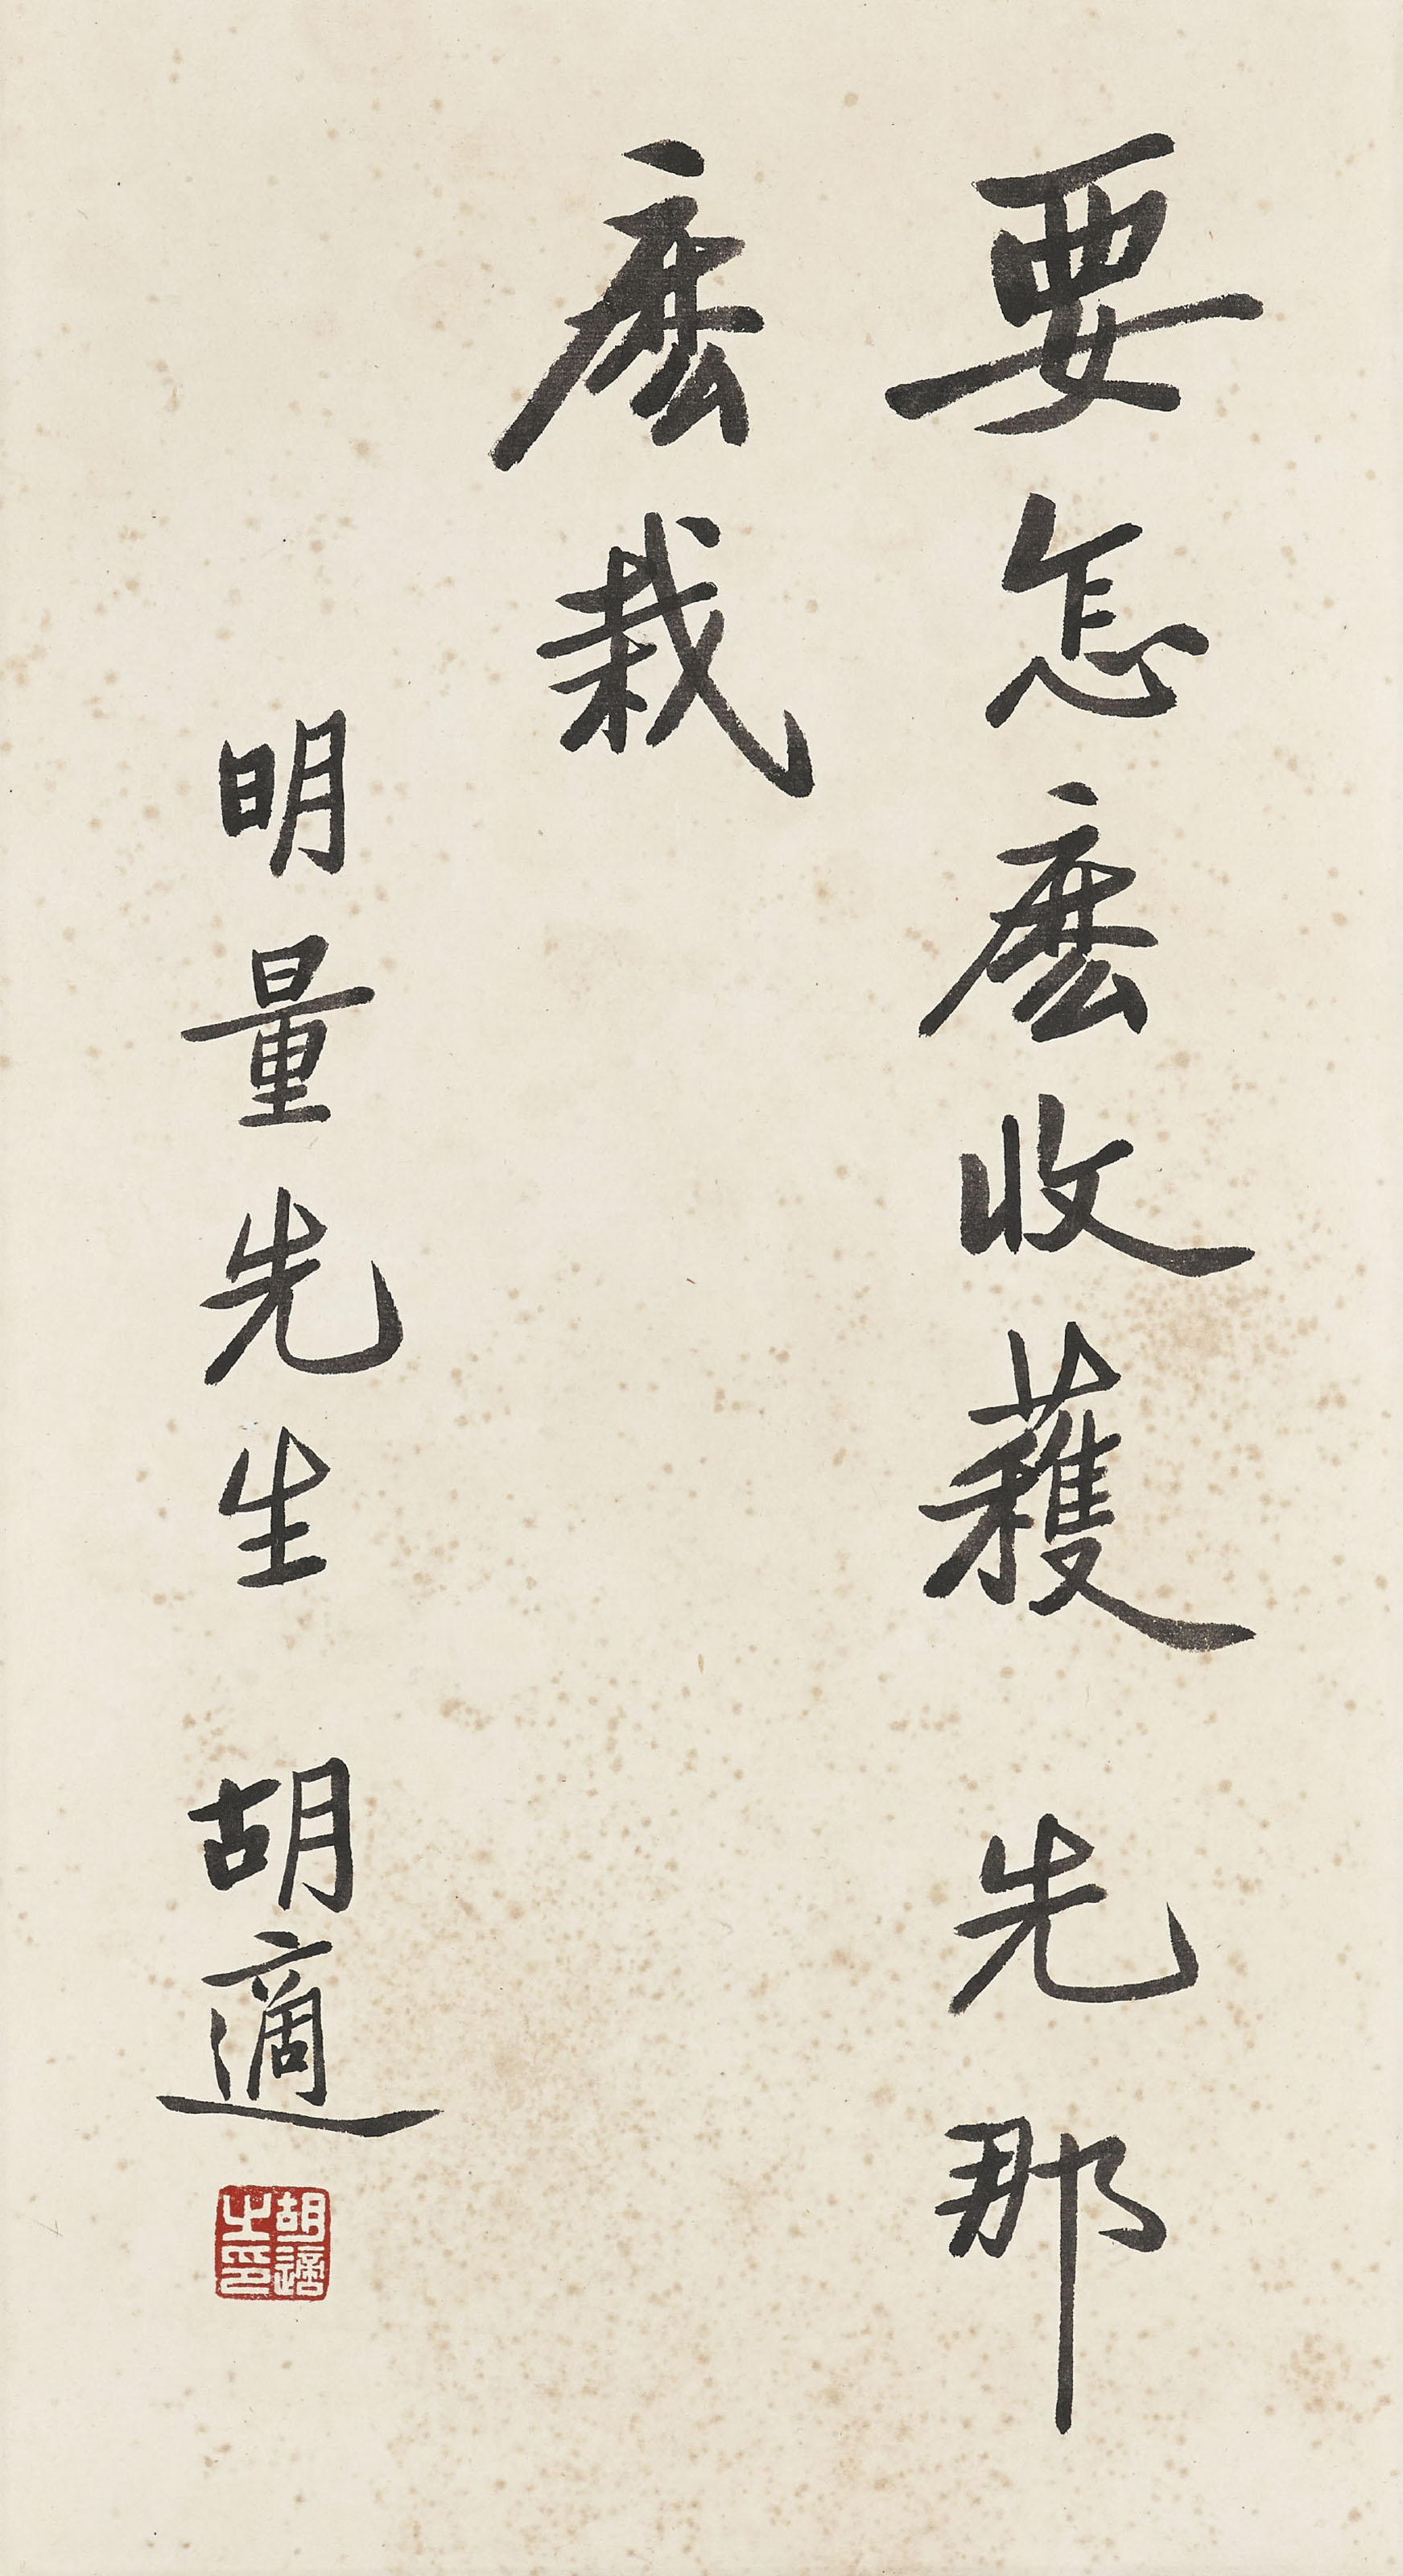 要怎麽收穫 先那
麽栽
明量先生 胡適
胡適之印